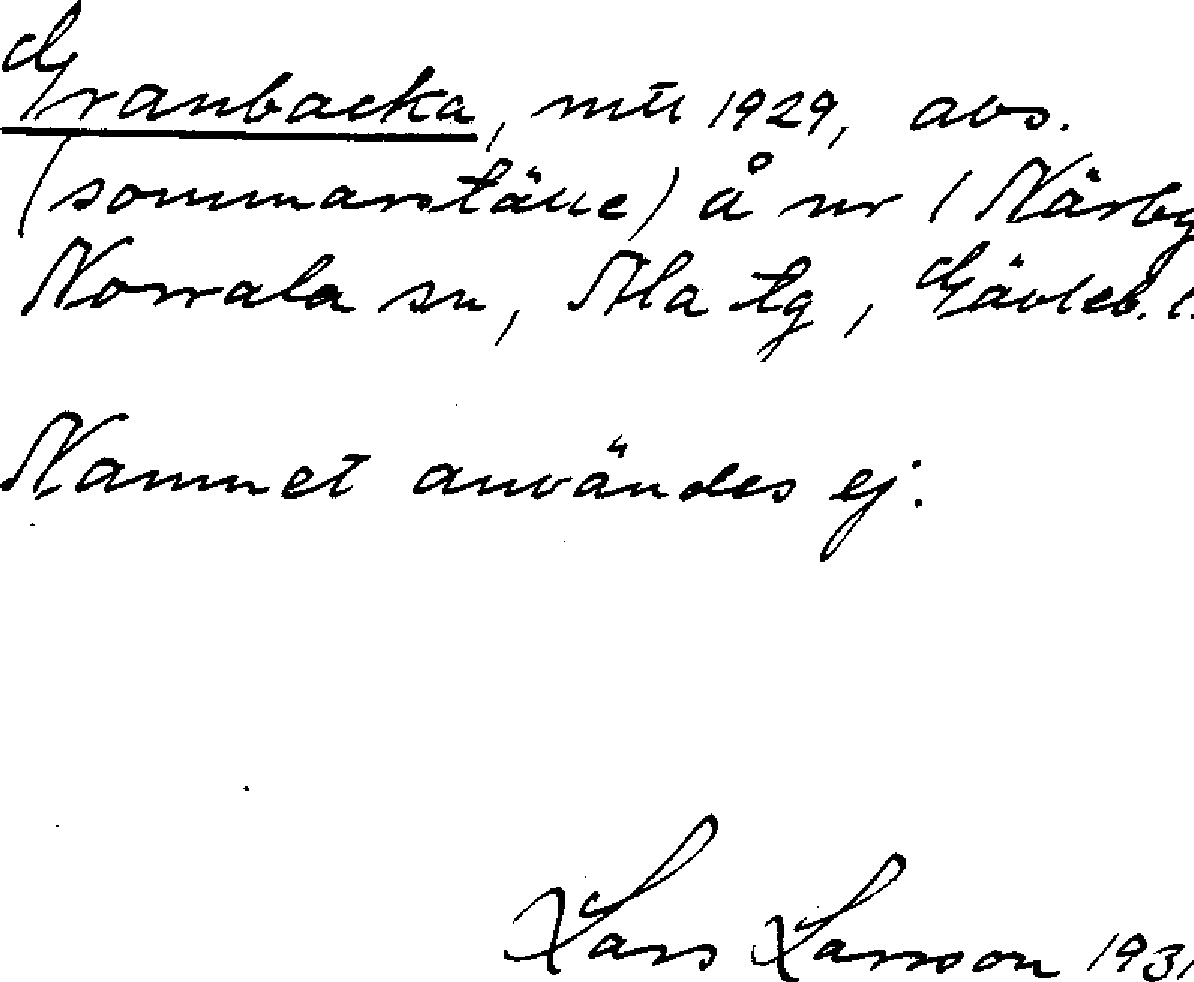 Granbacka, mtl 1929, avs.
(sommarställe) å nr 1 Närby
Norrala sn, Ala tg, Gävleb. l.
Namnet användes ej.
Lars Larsson 1931